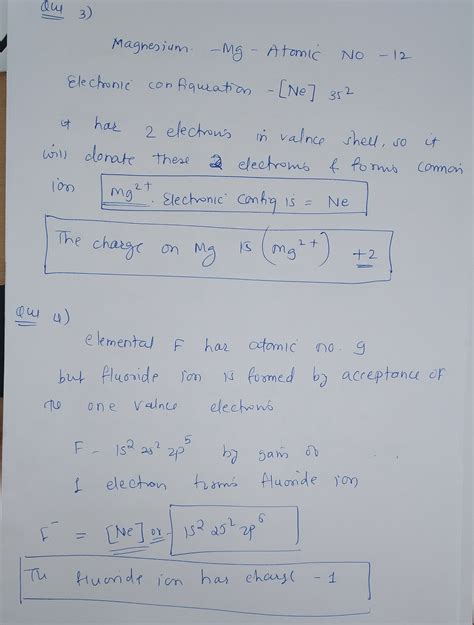 Que 3)
Magnesium - Mg - Atomic NO - 12
Electronic configuration - [Ne] 3s²
It has 2 electrons in valnce shell, so it
will donate these 2 electrons & forms common
ion Mg²⁺. Electronic Config is = Ne
The charge on Mg is (Mg²⁺) +2
Que 4)
elemental F has atomic no. 9
but fluoride ion is formed by acceptance of
the one valnce electrons
F - 1s² 2s² 2p⁵ by gain of
1 electron forms fluoride ion
F⁻ = [Ne] or 1s² 2s² 2p⁶
The fluoride ion has charge -1